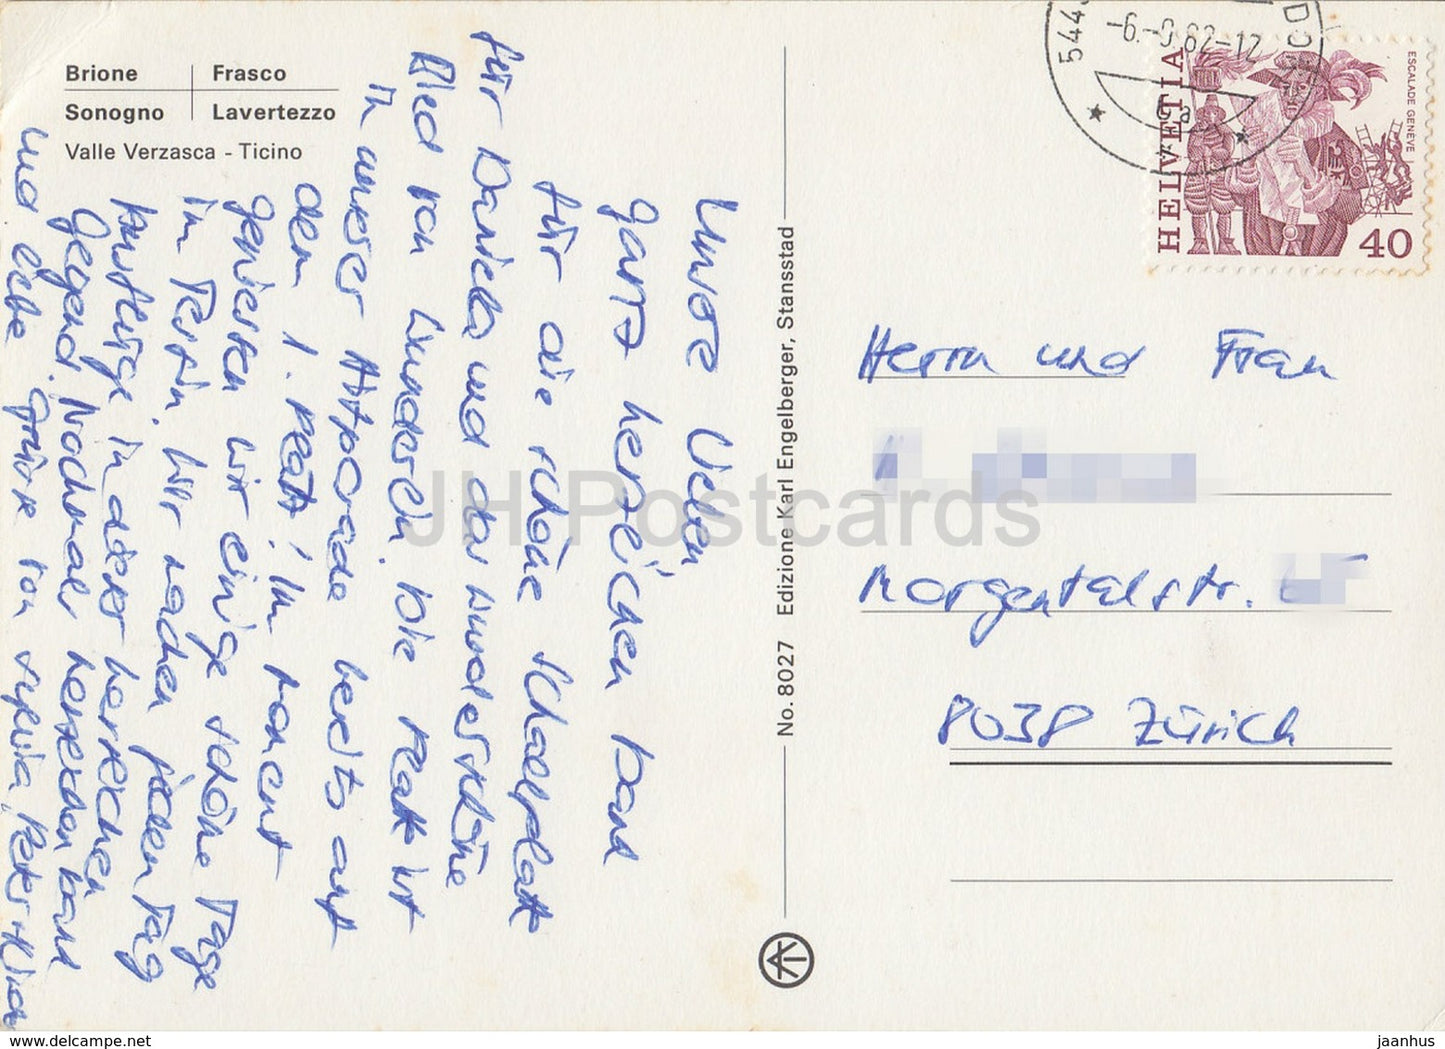 Brione Frasco
Sonogno Lavertezzo
Valle Verzasca - Ticino
Unsre Lieben
ganz herzlichen Dank
für die schöne Schallplatte
für Daniela und das wunderschöne
Lied von Wunderlich. Die Platte ist
in unser Hitparade bereits auf
dem 1. Platz! Im Moment
geniessen wir einige schöne Tage
im Tessin. Wir machen jeden Tag
Ausflüge in dieser herrlichen
Gegend. Nochmals herzlichen Dank
und liebe Grüsse von Sylvia, Peter +
No. 8027 Edizione Karl Engelberger, Stansstad
544
-6.-9.82-12
HELVETIA
ESCALADE GENÈVE
40
Herrn und Frau
Morgentalstr.
8038 Zürich
JH Postcards
delcampe.net
jaanhus